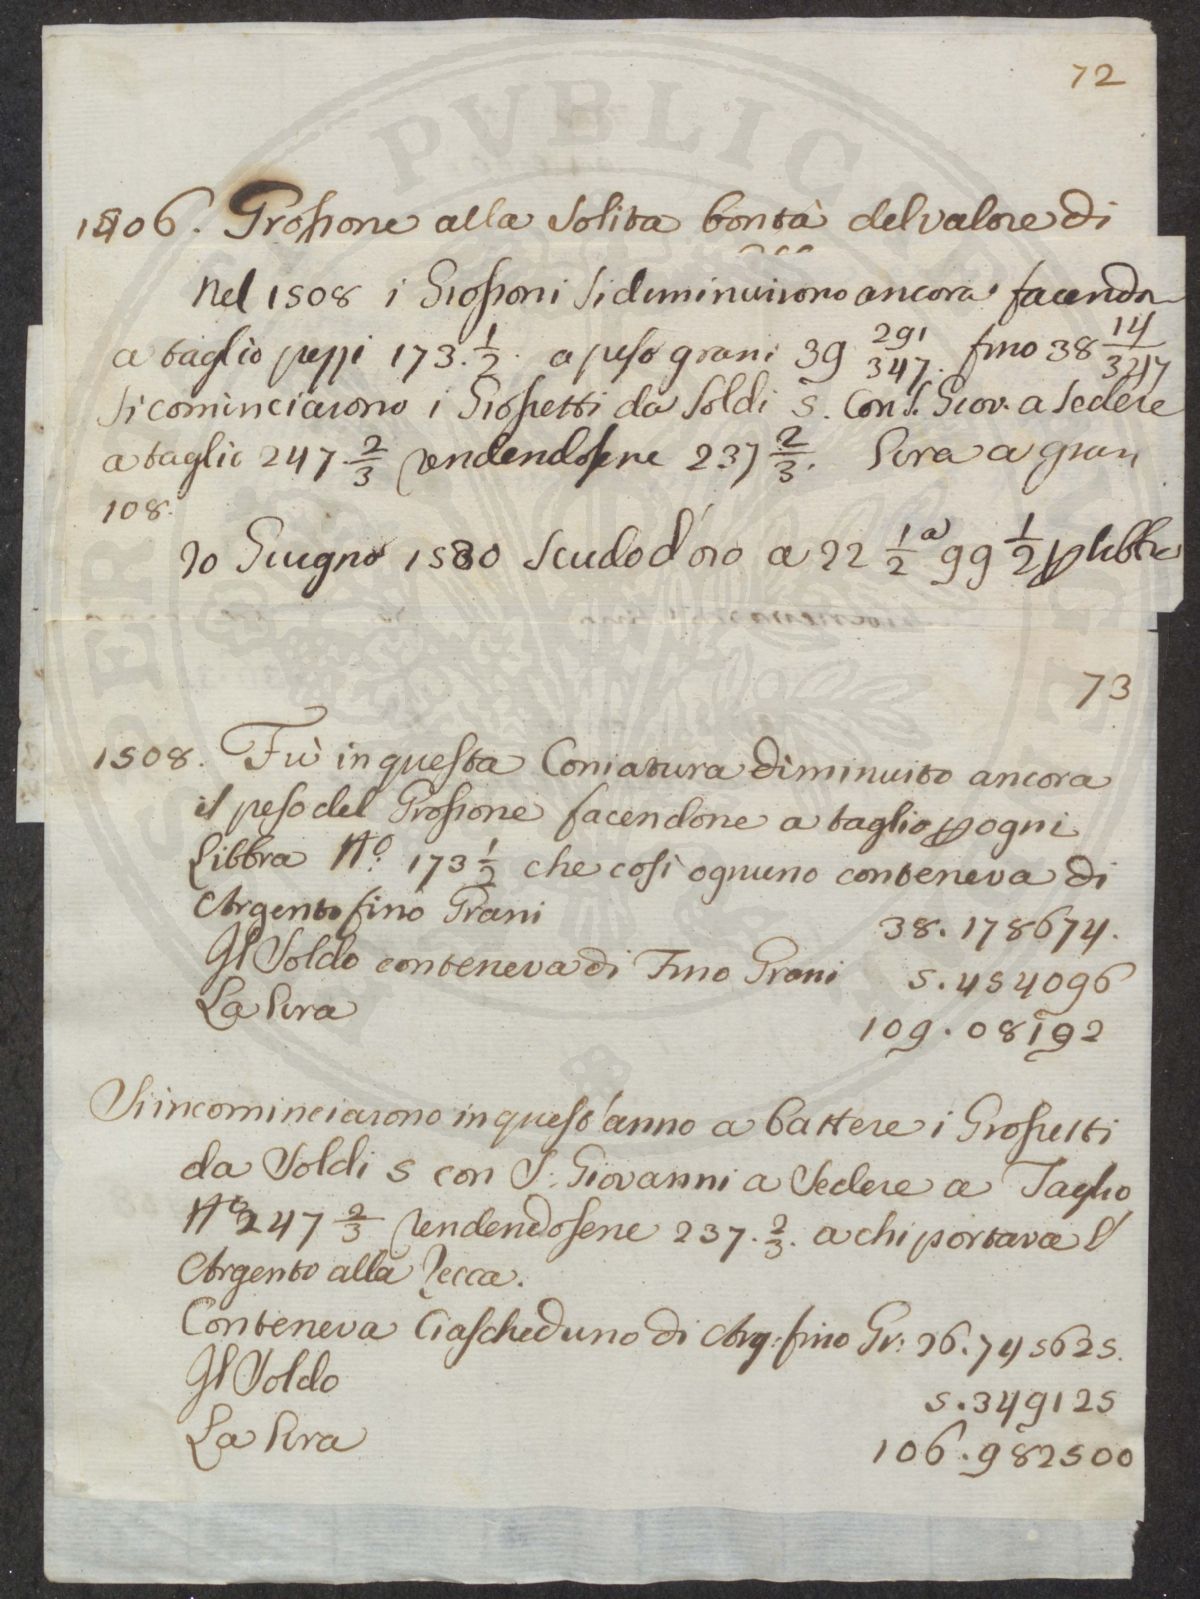 72
1506. Grossone alla solita bontà del valore di
Nel 1508 i Grossoni si diminuirono ancora facendo
a taglio pezzi 173. 1/2. a peso grani 39 291/347. fino 38 14/347
Si cominciarono i Grossetti da Soldi 5. Con S. Giov. a sedere
a taglio 247. 2/3 rendendosene 237 2/3. Lira a grani
108.
20 Giugno 1530 Scudo d'oro a 22 1/2 a 99 1/2 p libbra
73
1508. Fù in questa Coniatura diminuito ancora
il peso del Grossone facendone a taglio p ogni
Libbra N.o 173 1/2 che così ognuno conteneva di
Argento fino Grani 38.178674.
Il Soldo conteneva di Fino Grani 5.454096
La Lira 109.08192
S'incominciarono in quest'anno a battere i Grossetti
da Soldi 5 con S. Giovanni a Sedere a Taglio
N.o 247 2/3 rendendosene 237. 2/3. a chi portava l'
Argento alla Zecca.
Conteneva Ciascheduno di Arg: fino Gr: 26.745625.
Il Soldo 5.349125
La Lira 106.982500
PVBLIC